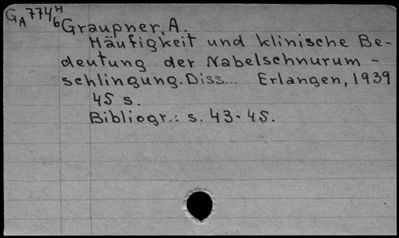 GA 774 H/b
Graupner, A.
Häufigkeit und klinische Be-
deutung der Nabelschnurum-
schlingung. Diss... Erlangen, 1939
45 s.
Bibliogr.: s. 43-45.